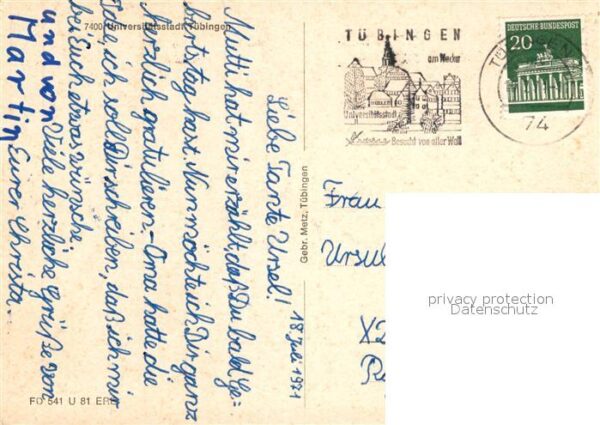 7400 Universitätsstadt Tübingen
Liebe Tante Ursel!
Mutti hat mir erzählt, daß Du bald Ge=
burtstag hast. Nun möchte ich Dir ganz
herzlich gratulieren.- Oma hatte die
ich soll Dir schreiben, daß ich mir
bei Euch etwas wünsche.
Viele herzliche Grüße von
Eurer Christa.
und von
Martin
18 Juli 1971
Gebr. Metz, Tübingen
FO 541 U 81 ERE
TÜBINGEN
am Neckar
Universitätsstadt
Besucht von aller Welt
DEUTSCHE BUNDESPOST
20
74
Frau
Ursul
X2
privacy protection
Datenschutz